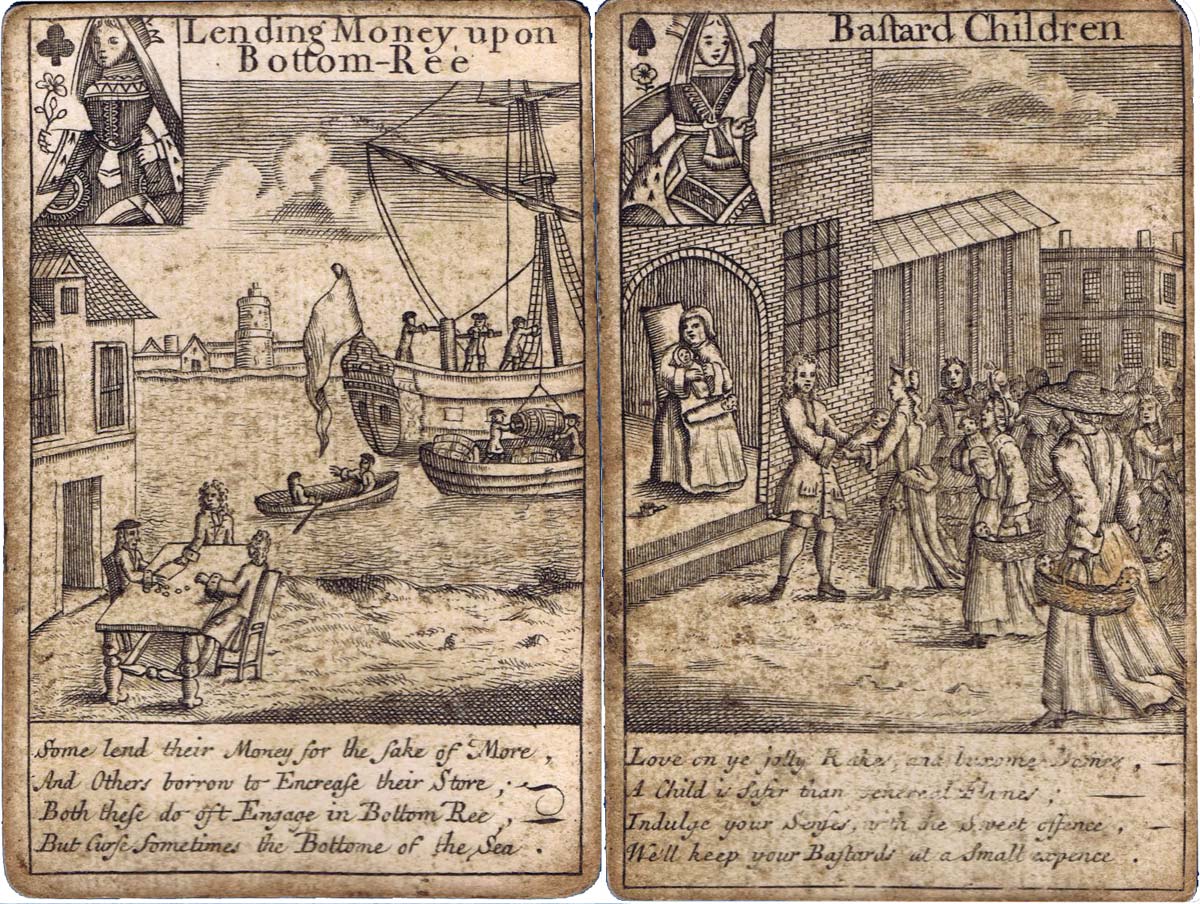 Lending Money upon
Bottom-Reé
Some lend their Money for the sake of More,
And Others borrow to Encrease their Store;
Both these do oft Engage in Bottom Ree,
But Curse sometimes the Bottome of the Sea.
Bastard Children
Love on ye jolly Rakes, and buxome Dames,
A Child is safer than Venereal Flames;
Indulge your Senses, with the Sweet offence,
We'll keep your Bastards at a Small expence.